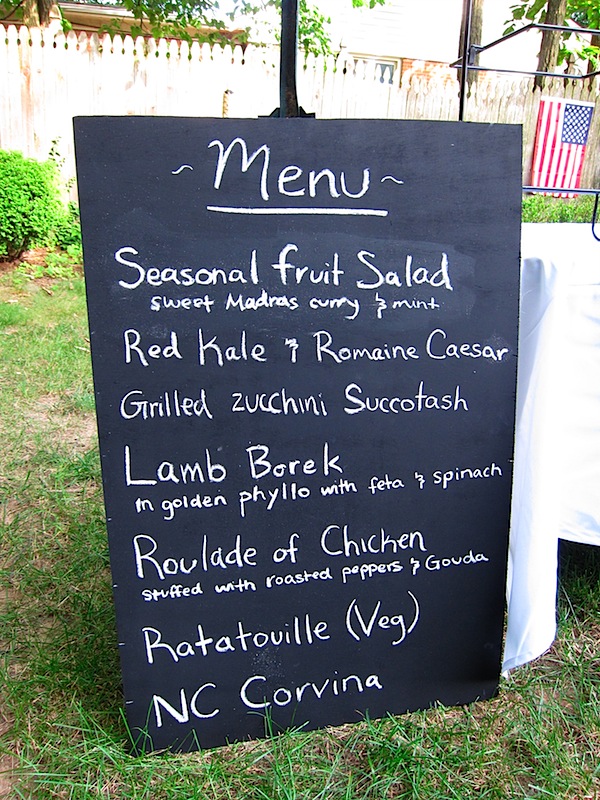 ~ Menu ~
Seasonal fruit Salad
sweet Madras curry & mint
Red Kale & Romaine Caesar
Grilled zucchini Succotash
Lamb Borek
in golden phyllo with feta & spinach
Roulade of Chicken
stuffed with roasted peppers & Gouda
Ratatouille (Veg)
NC Corvina